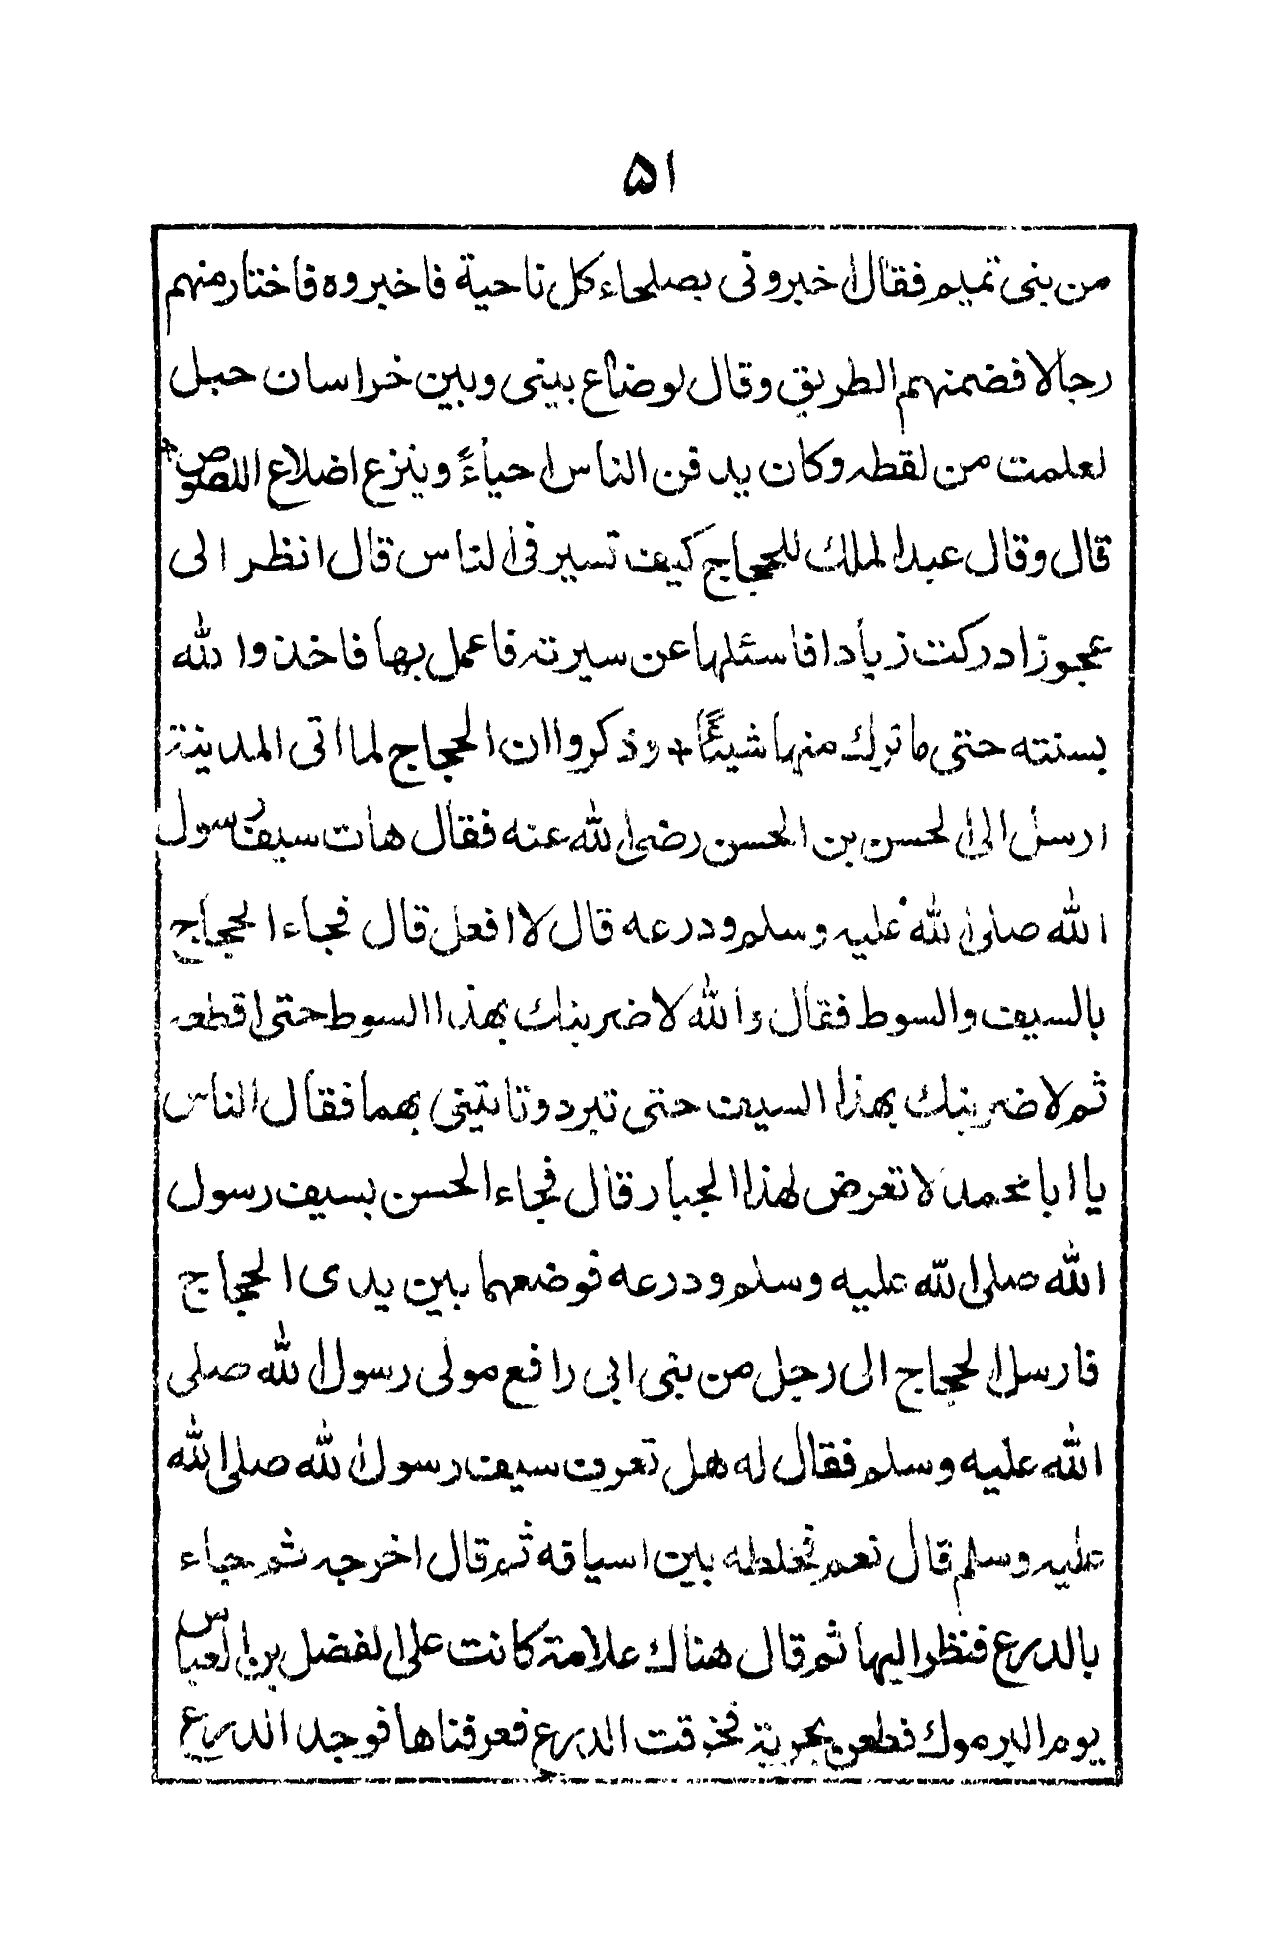 ۵۱
من بنى تميم فقال اخبرونى بصلحاء كل ناحية فاخبروه فاختار منهم
رجالا فضمنهم الطريق وقال لوضاع بينى وبين خراسان حبل
لعلمت من لقطه وكان يدفن الناس احياءً وينزع اضلاع اللصوص
قال وقال عبد الملك للحجاج كيف تسير فى الناس قال انظر الى
عجوز ادركت زيادا فاسئلها عن سيرته فاعمل بها فاخذ والله
بسنته حتى ما ترك منها شيئًا + وذكروا ان الحجاج لما اتى المدينة
ارسل الى الحسن بن الحسن رضى الله عنه فقال هات سيف رسول
الله صلى الله عليه وسلم ودرعه قال لا افعل قال فجاء الحجاج
بالسيف والسوط فقال والله لاضربنك بهذا السوط حتى اقطعه
ثم لاضربنك بهذا السيف حتى تبرد وتاتينى بهما فقال الناس
يا ابا محمد لا تعرض لهذا الجبار قال فجاء الحسن بسيف رسول
الله صلى الله عليه وسلم ودرعه فوضعهما بين يدى الحجاج
فارسل الحجاج الى رجل من بنى ابى رافع مولى رسول الله صلى
الله عليه وسلم فقال له هل تعرف سيف رسول الله صلى الله
عليه وسلم قال نعم فخلطه بين اسيافه ثم قال اخرجه ثم جاء
بالدرع فنظر اليها ثم قال هناك علامة كانت على الفضل بن العباس
يوم اليرموك فطعن بحربة فخرقت الدرع فعرفناها فوجد الدرع